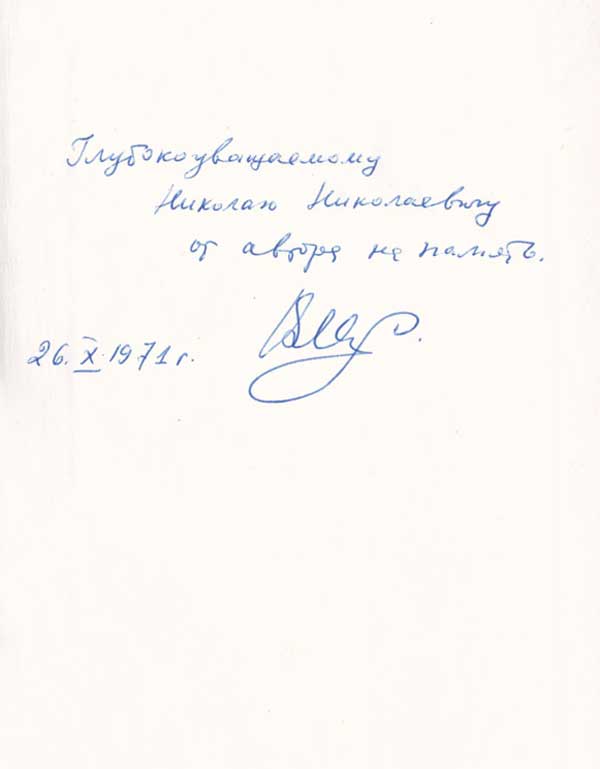 Глубокоуважаемому
Николаю Николаевичу
от автора на память.
26.X.1971 г.